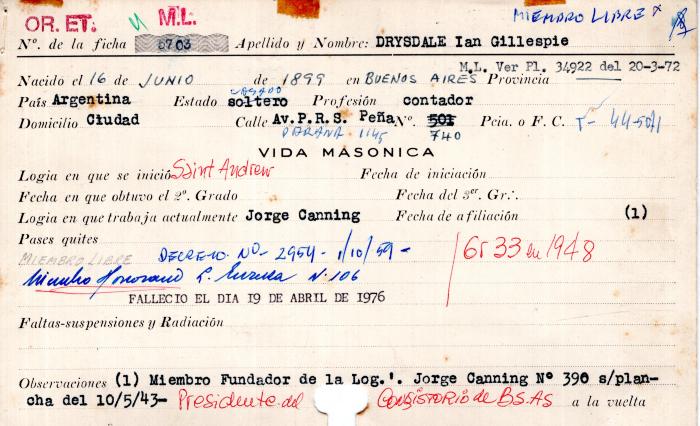 OR. ET. M.L. MIEMBRO LIBRE x
Nº. de la ficha 6703 Apellido y Nombre: DRYSDALE Ian Gillespie
M.L. Ver Pl. 34922 del 20-3-72
Nacido el 16 de JUNIO de 1899 en BUENOS AIRES Provincia
CASADO
País Argentina Estado soltero Profesión contador
Domicilio Ciudad Calle Av.P.R.S. Peña Nº. 501 Pcia. o F. C. T- 44-5071
PARANA 1145 740
VIDA MASONICA
Logia en que se inició Saint Andrew Fecha de iniciación
Fecha en que obtuvo el 2º. Grado Fecha del 3er. Gr∴
Logia en que trabaja actualmente Jorge Canning Fecha de afiliación (1)
Pases quites
MIEMBRO LIBRE DECRETO Nº- 2954- 1/10/59- Gr 33 en 1948
Miembro Honorario L. Eureka Nº 106
FALLECIO EL DIA 19 DE ABRIL DE 1976
Faltas-suspensiones y Radiación
Observaciones (1) Miembro Fundador de la Log.'. Jorge Canning Nº 390 s/plan-
cha del 10/5/43- Presidente del CONSISTORIO de BS.AS a la vuelta